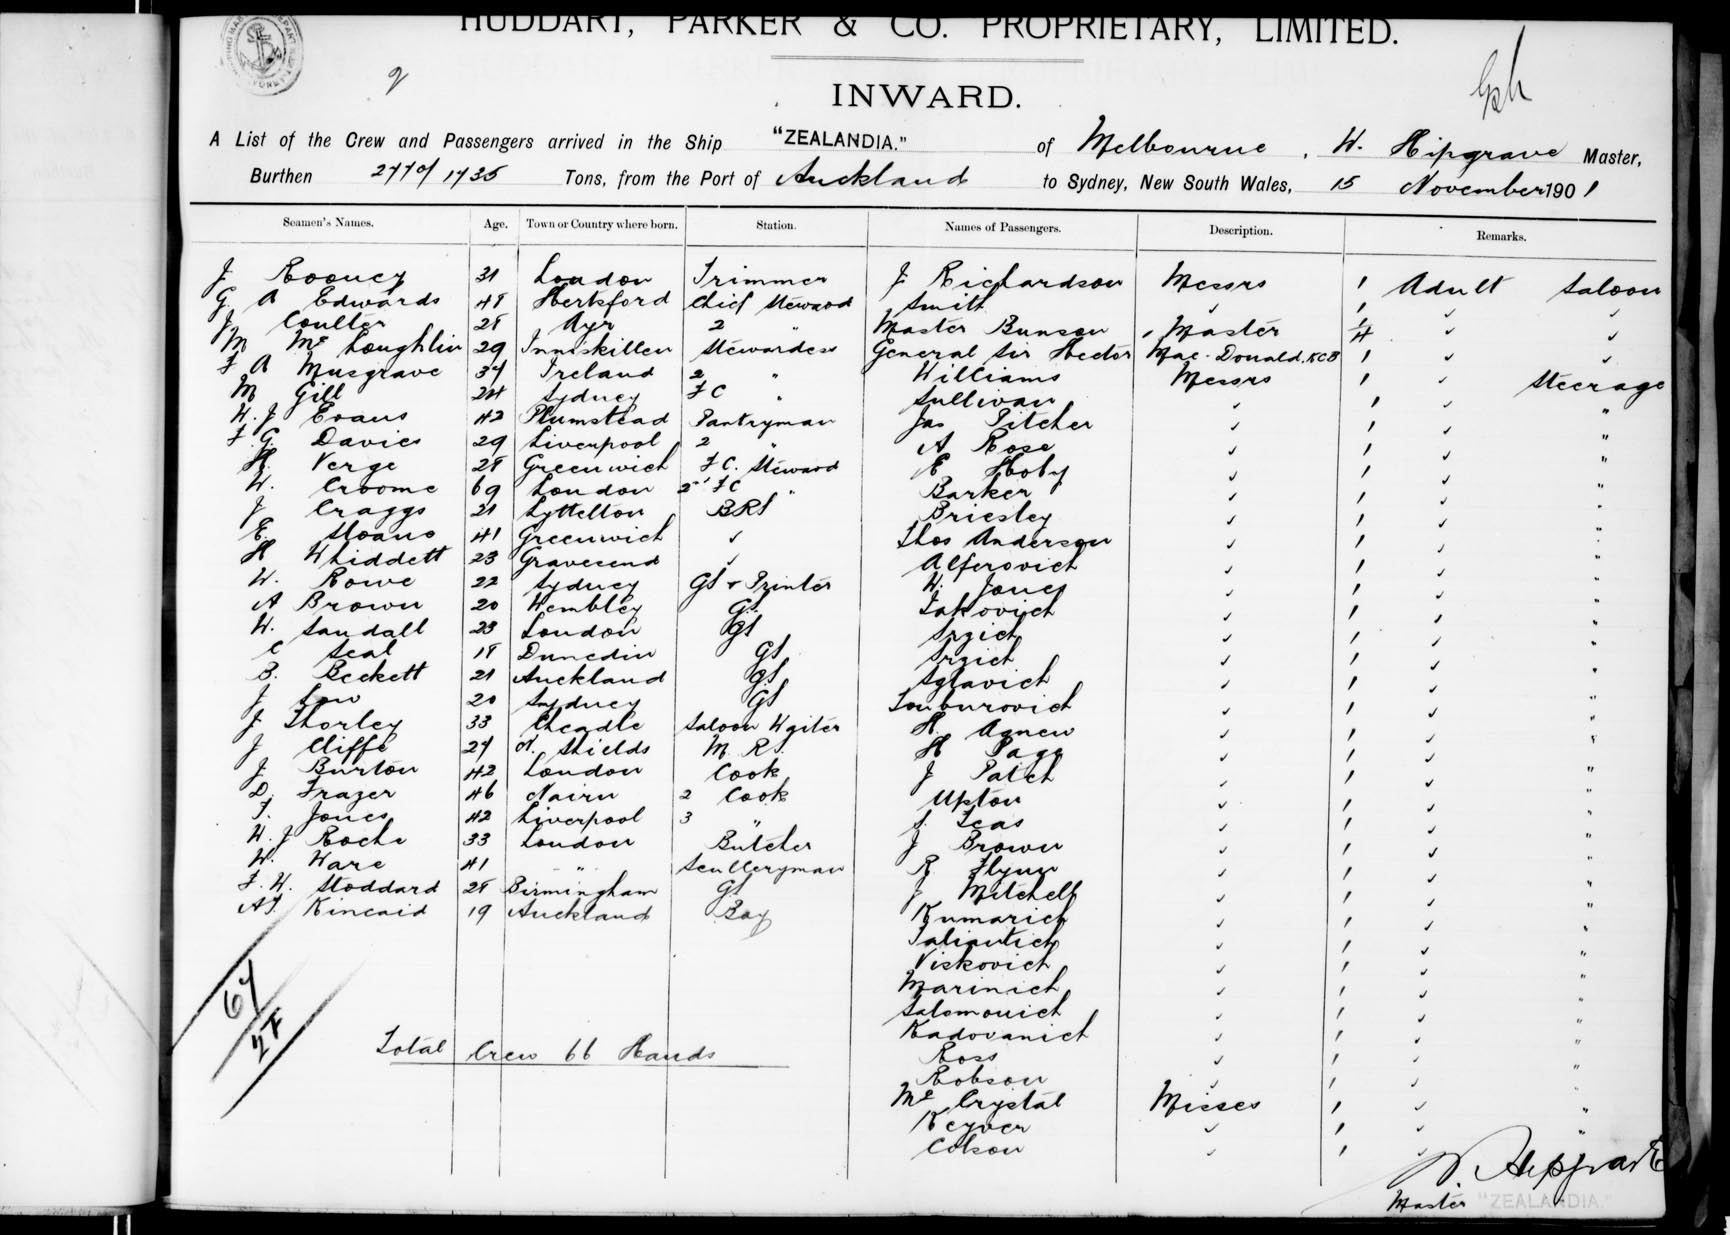 HUDDART, PARKER & CO. PROPRIETARY, LIMITED.
INWARD.
A List of the Crew and Passengers arrived in the Ship "ZEALANDIA." of Melbourne, W. Hipgrave Master,
Burthen 2770/1735 Tons, from the Port of Auckland to Sydney, New South Wales, 15 November 1901
Seamen's Names. Age. Town or Country where born. Station. Names of Passengers. Description. Remarks.
J Rooney 31 London Trimmer J Richardson Messrs 1 Adult Saloon
G A Edwards 48 Hertsford Chief Steward Smith ✓ 1 ✓ ✓
J Coulter 28 Ayr 2 " Master Bunson 1 Master 1/4 ✓ ✓
M McLoughlin 29 Inniskillen Stewardess General Sir Hector Mac-Donald, KCB 1 ✓ ✓
F A Musgrave 37 Ireland 2 " Williams Messrs 1 ✓ Steerage
M Gill 24 Sydney FC " Sullivan ✓ 1 ✓ "
W. J Evans 42 Plumstead Pantryman Jas Pitcher ✓ 1 ✓ "
F. G. Davies 29 Liverpool 2 " A Rose ✓ 1 ✓ "
H. Verge 28 Greenwich FC. Steward E Hoby ✓ 1 ✓ "
W. Croome 69 London 2nd FC " Barker ✓ 1 ✓ "
J Craggs 21 Lyttelton BRS Briesley ✓ 1 ✓ "
E. Sloano 41 Greenwich ✓ Thos Anderson ✓ 1 ✓ "
H Whiddett 23 Gravesend ✓ Alferovich ✓ 1 ✓ "
W. Rowe 22 Sydney GS + Printer W. Jones ✓ 1 ✓ "
A Brown 20 Wembley GS. Jakovich ✓ 1 ✓ "
W. Sandall 23 London GS Srzich ✓ 1 ✓ "
C Seal 18 Dunedin GS Srzich ✓ 1 ✓ "
B. Beckett 21 Auckland GS Sglavich ✓ 1 ✓ "
J Low 20 Sydney GS ✓ 1 ✓ "
J Thorley 33 Cheadle Saloon Waiter H. Agnew ✓ 1 ✓ "
J Cliffe 27 N. Shields M. RS. H Page ✓ 1 ✓ "
J Burton 42 London Cook J Patch ✓ 1 ✓ "
D. Frazer 46 Nairn 2 Cook Upton ✓ 1 ✓ "
T. Jones 42 Liverpool 3 " S. Teas ✓ 1 ✓ "
W. J Roche 33 London Butcher J Brown ✓ 1 ✓ "
W. Ware 41 " Sculleryman R Flynn ✓ 1 ✓ "
F. W. Stoddard 28 Birmingham GS J Mitchell ✓ 1 ✓ "
Kincaid 19 Auckland Boy Kumarich ✓ 1 ✓ "
✓ 1 ✓ "
Viskovich ✓ 1 ✓ "
Marinich ✓ 1 ✓ "
Salomonich ✓ 1 ✓ "
Radovanich ✓ 1 ✓ "
Total Crew 66 Hands Ross ✓ 1 ✓ "
Robson ✓ 1 ✓ "
McCrystal Misses 1 ✓ "
Keyver ✓ 1 ✓ "
Colson ✓ 1 ✓
W. Hipgrave
Master "ZEALANDIA."